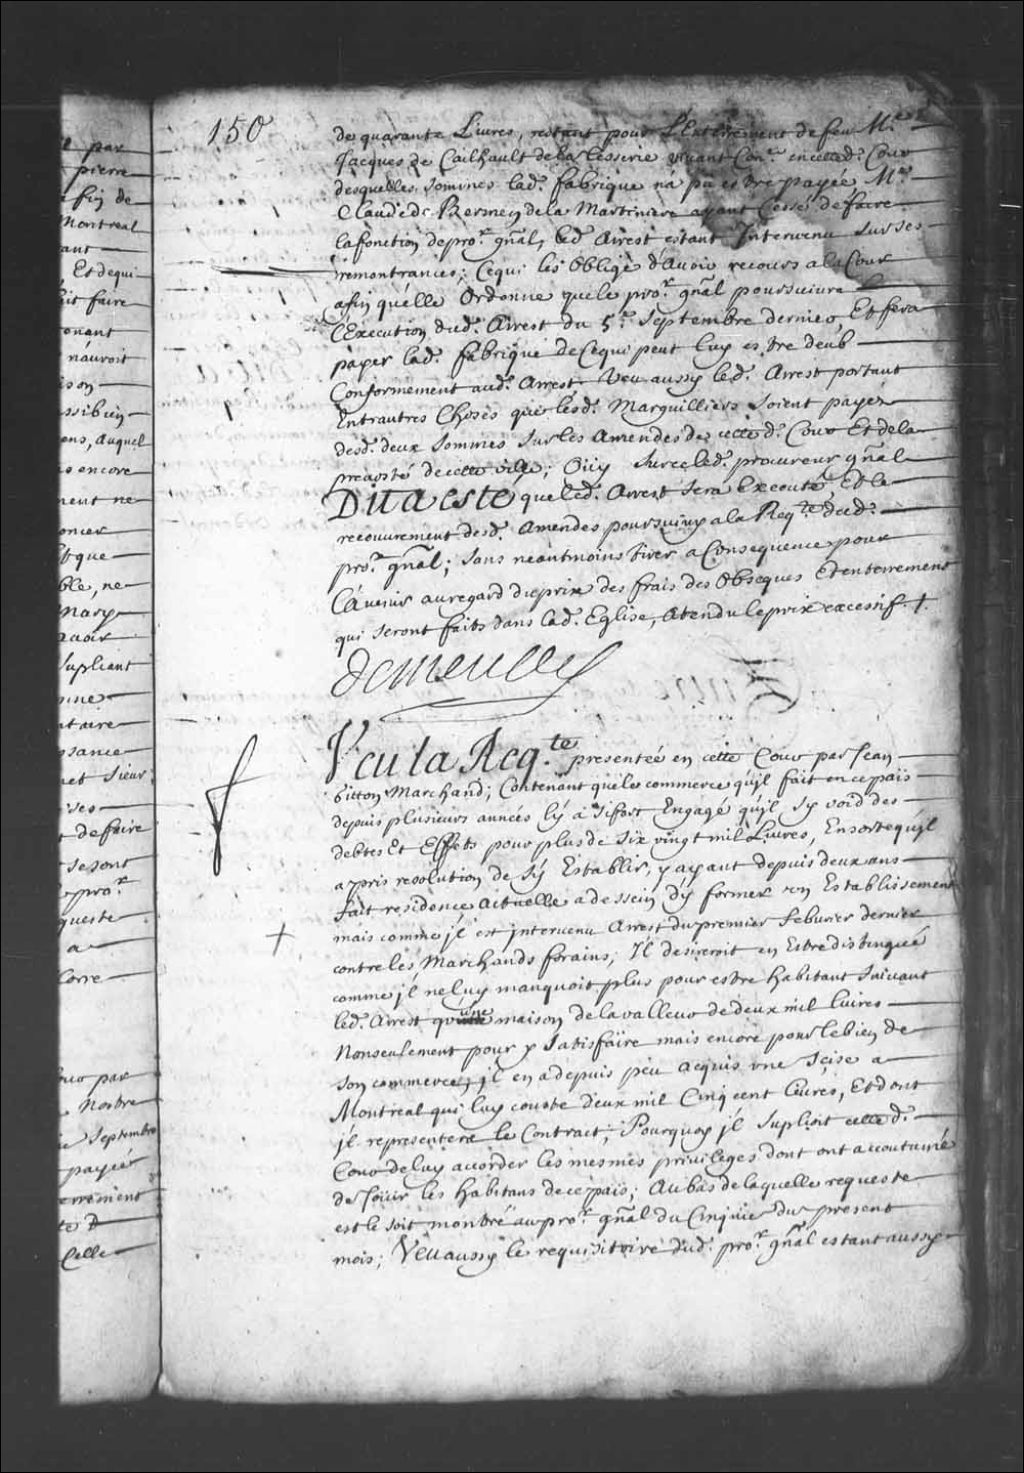 150
de quarante Livres, restant pour L'Enterrement de feu Mr.
Jacques de Cailhault de la Tesserie vivant Conr. en cetted. Cour
desquelles sommes lad. fabrique n'a pû estre payée Me.
Claude de Bermen de la Martiniere ayant Cessé de faire
la fonction de pror. gñal, led. Arrest estant Intervenu sur ses
remontrances; Ce qui les Oblige d'Avoir recours a la Cour
afin qu'elle Ordonne que le pror. gñal poursuivre
L'Execution dud. Arrest du 5e. Septembre dernier, Et fera
payer lad. fabrique de Ce qui peut luy estre deub
Conformement aud. Arrest. Veu aussy led. Arrest portant
Entr'autres Choses que lesd. Marguilliers soient payéz
desd. deux sommes sur les Amendes de cetted. Cour Et de la
prevosté de cette ville; Oüy sur ce led. procureur gñal
Dit a esté que led. Arrest sera Executé, Et le
recouvrement desd. Amendes poursuivy a la Reqte. dud.
pror. gñal; sans neantmoins tirer a Consequence pour
L'Avenir au regard du prix des frais des Obseques Et enterrement
qui seront faits dans lad. Eglise, Atendu le prix excessif. †.
Demeulle
Veu la Reqte. presentée en cette Cour par Jean
Gitton Marchand; Contenant que le commerce qu'jl fait en ce païs
depuis plusieurs années l'y à si fort Engagé qu'jl s'y void des
debtes Et Effets pour plus de six vingt mil Livres, En sorte qu'jl
a pris resolution de s'y Establir, y ayant depuis deux ans
fait residence actuelle a dessein d'y former son Establissement
mais comme jl est jntervenu Arrest du premier feburier dernier
contre les Marchands forains; Il desireroit en Estre distingué
comme jl ne luy manquoit plus pour estre habitant suivant
led. Arrest qu'une maison de la valleur de deux mil livres
Nonseulement pour y satisfaire mais encore pour le bien de
son commerce, jl en a depuis peu acquis vne scise a
Montreal qui luy couste deux mil Cinq cent livres, Et dont
jl representera le Contract; Pourquoy jl suplioit cetted.
Cour de luy accorder les mesmes privileges dont ont accoutumé
de joüir les habitans de ce païs; Au bas de laquelle requeste
est le soit montré au pror. gñal du Cinquie. du present
mois; Veu aussy le requisitoire dud. pror. gñal estant aussy
par
pierre
fin de
Montreal
ant
Et de qui
fait faire
n'auroit
ssi bien
ons, auquel
encore
ment ne
que
ble, ne
Mary
avoir
supliant
taire
ssance
et sieur
de faire
se sont
pror.
queste
a
par
Nostre
Septembre
payer
errement
Celle